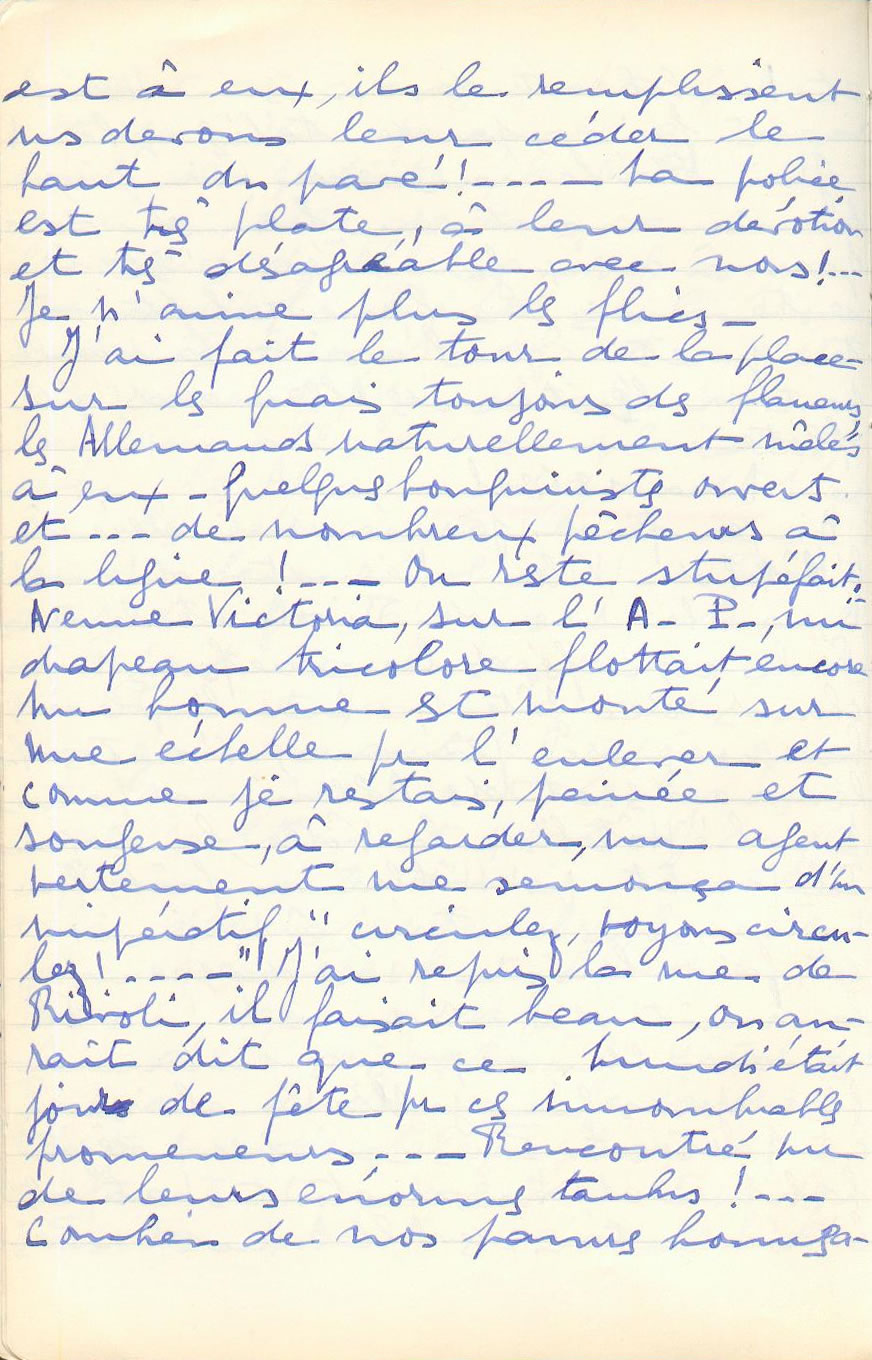 est à eux, ils le remplissent
ns devons leur céder le
haut du pavé !---- La police
est très plate, à leur dévotion
et très désagréable avec nous !---
Je n'aime plus les flics_
J'ai fait le tour de la place_
sur les quais toujours des flaneurs,
les Allemands naturellement mêlés
à eux - quelques bouquinistes ouverts.
et --- de nombreux pêcheurs à
la ligne !--- On reste stupéfait.
Avenue Victoria, sur l'A- P-, un
drapeau tricolore flottait encore
un homme est monté sur
une échelle pr l'enlever et
comme je restais, peinée et
songeuse, à regarder, un agent
vertement me semonça d'un
impératif "circulez, voyons circu-
lez !----" J'ai repris la rue de
Rivoli, il faisait beau, on au-
rait dit que ce lundi était
jour de fête pr ces innombrables
promeneurs --- Rencontré un
de leurs énormes tanks !---
Combien de nos pauvres hommes